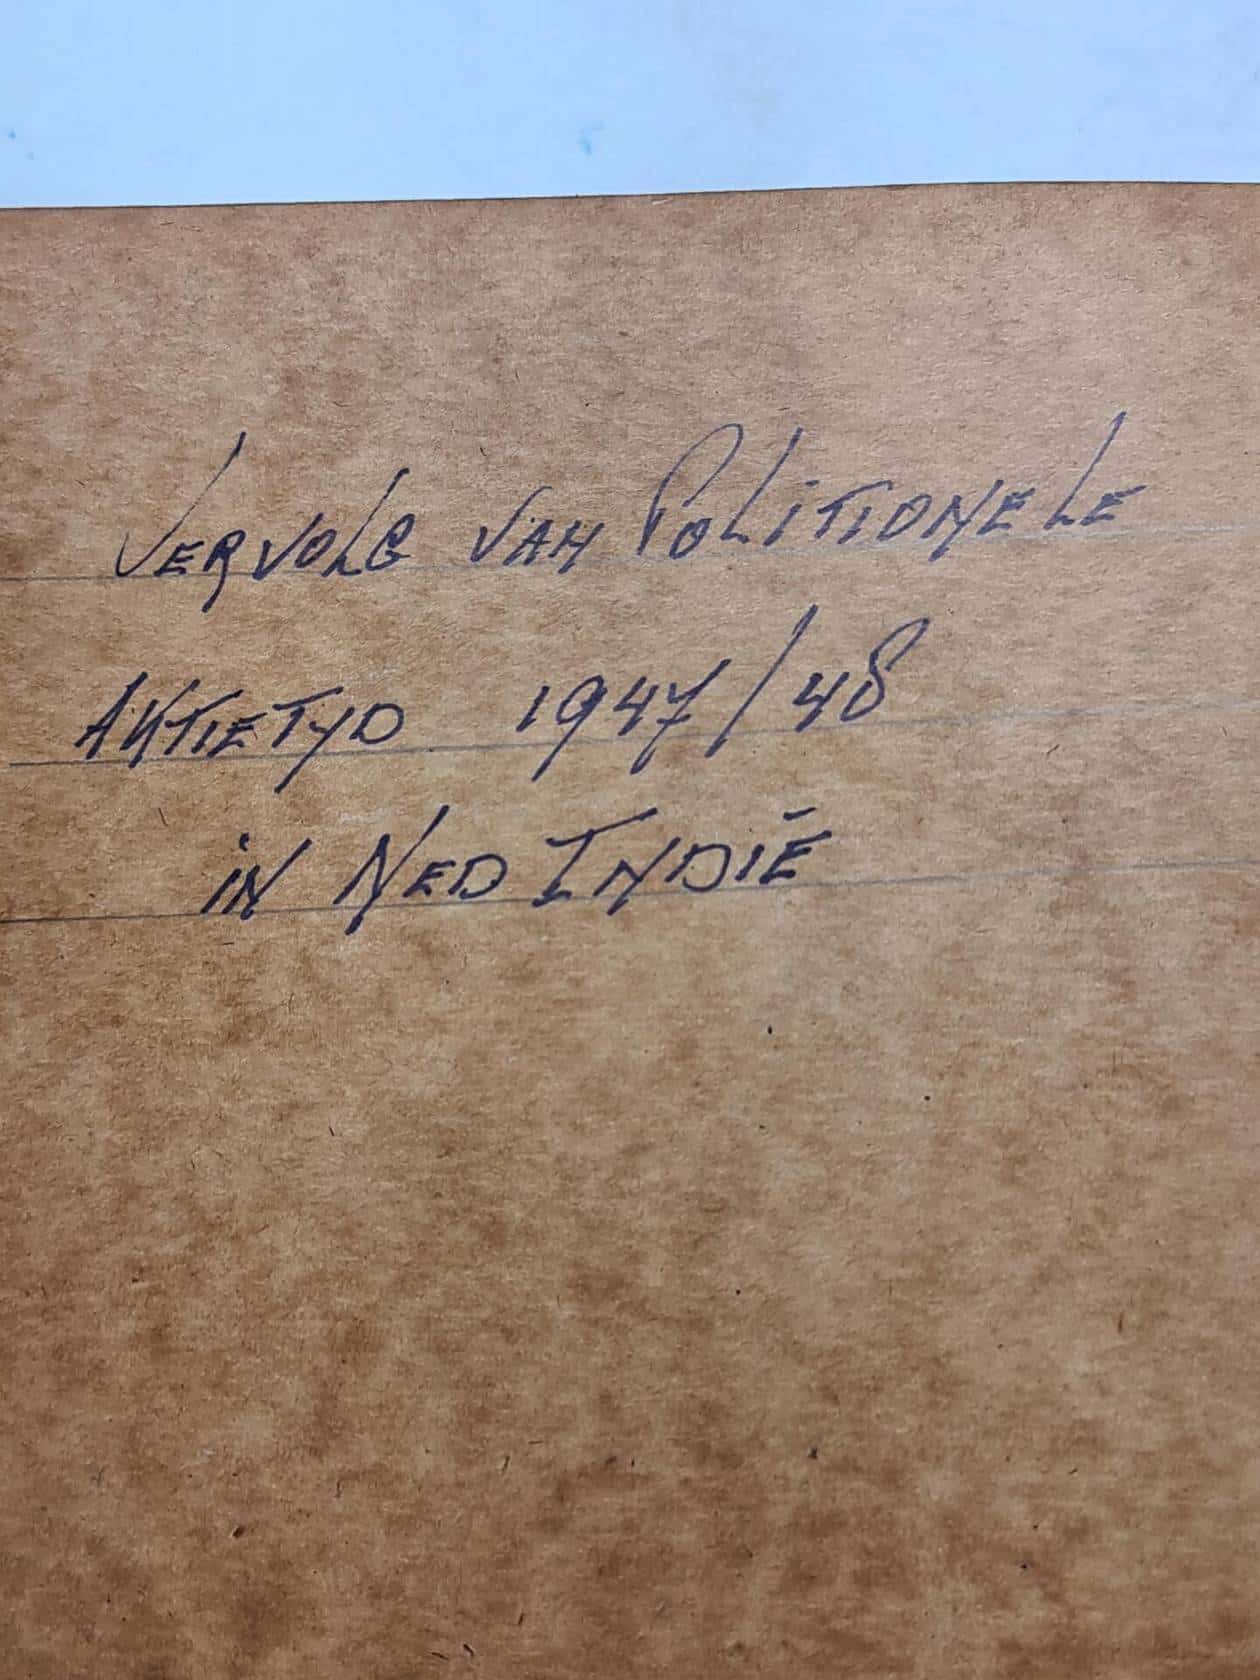 VERVOLG VAN POLITIONELE
AKTIETYD 1947/48
iN NED INDIË